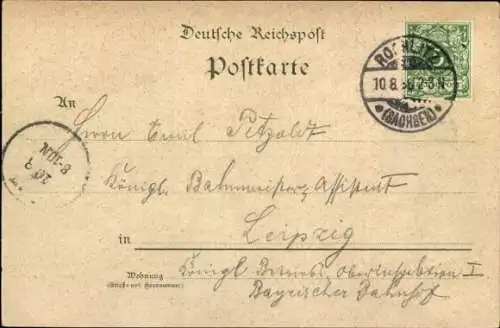 Deutsche Reichspost
Postkarte
ROCHLITZ
10.8. 2-3N
*(SACHSEN)*
An
Herrn Emil Petzoldt
Königl. Bahnmeister, Assistent
in Leipzig
Wohnung
(Straße und Hausnummer)
Königl Betriebs Oberinspektion I
Bayrischer Bahnhof